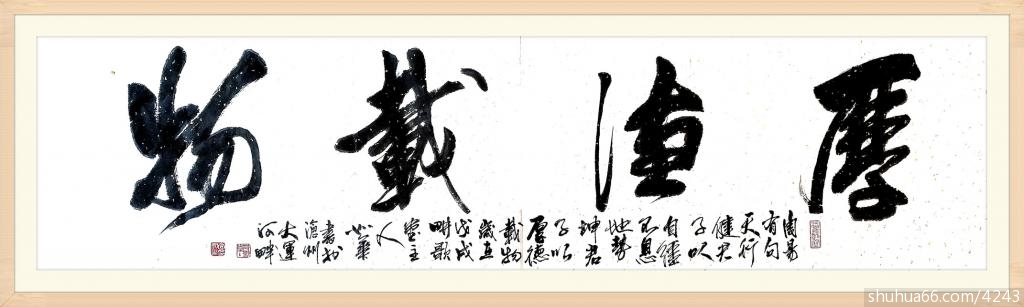 厚德載物
周易
有句
天行
健君
子以
自強
不息
地勢
坤君
子以
厚德
載物
歲在
戊戌
歌
主
人
華
書於
滄州
大運
河畔
shuhua66.com/4243